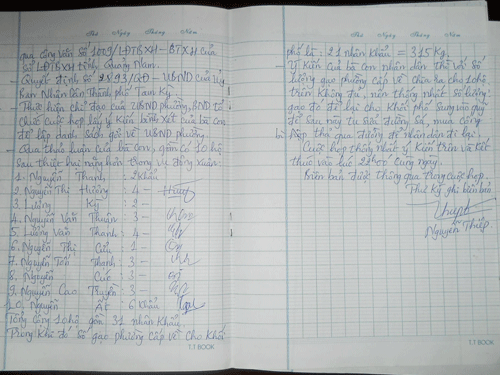 Thứ Ngày Tháng Năm
qua công văn số 1009/LĐTBXH - BTXH của
sở LĐTBXH tỉnh Quảng Nam.
- Quyết định số 2893/QĐ - UBND của Uỷ
Ban Nhân dân Thành phố Tam Kỳ.
- Thực hiện chỉ đạo của UBND phường, BND tổ
chức cuộc họp lấy ý kiến bình xét của bà con
để lập danh sách gởi về UBND phường.
- Qua thảo luận của bà con, gồm có 10 hộ
sau thiệt hại nặng hơn trong vụ Đông Xuân:
1. Nguyễn Thanh : 2 Khẩu
2. Nguyễn Thị Hường : 4 -
3. Lương Kỳ : 2 -
4. Nguyễn Văn Thuân : 3 -
5. Lương Văn Thanh : 4 -
6. Nguyễn Thị Cửu : 1 -
7. Nguyễn Tấn Thanh : 3 -
8. Nguyễn Cúc : 3 -
9. Nguyễn Cao Truyền : 3 -
10. Nguyễn Ất : 6 Khẩu
Tổng cộng 10 hộ gồm 31 nhân khẩu.
Trong khi đó số gạo phường cấp về cho khối
T.T BOOK
Thứ Ngày Tháng Năm
phố là : 21 nhân khẩu = 315 Kg.
- Ý kiến của bà con nhân dân thì với số
lượng gạo phường cấp về chia ra cho 10 hộ
trên không đủ, nên thống nhất số lượng
gạo đó để lại cho khối phố sung vào quỹ
để sau này tu sửa đường sá, mua cống
bi đắp thả qua đường để nhân dân đi lại.
Cuộc họp thống nhất ý kiến trên và kết
thúc vào lúc 22h00 cùng ngày.
Biên bản được thông qua trong cuộc họp.
Thư ký ghi biên bản
Thiệp
Nguyễn Thiệp.
T.T BOOK